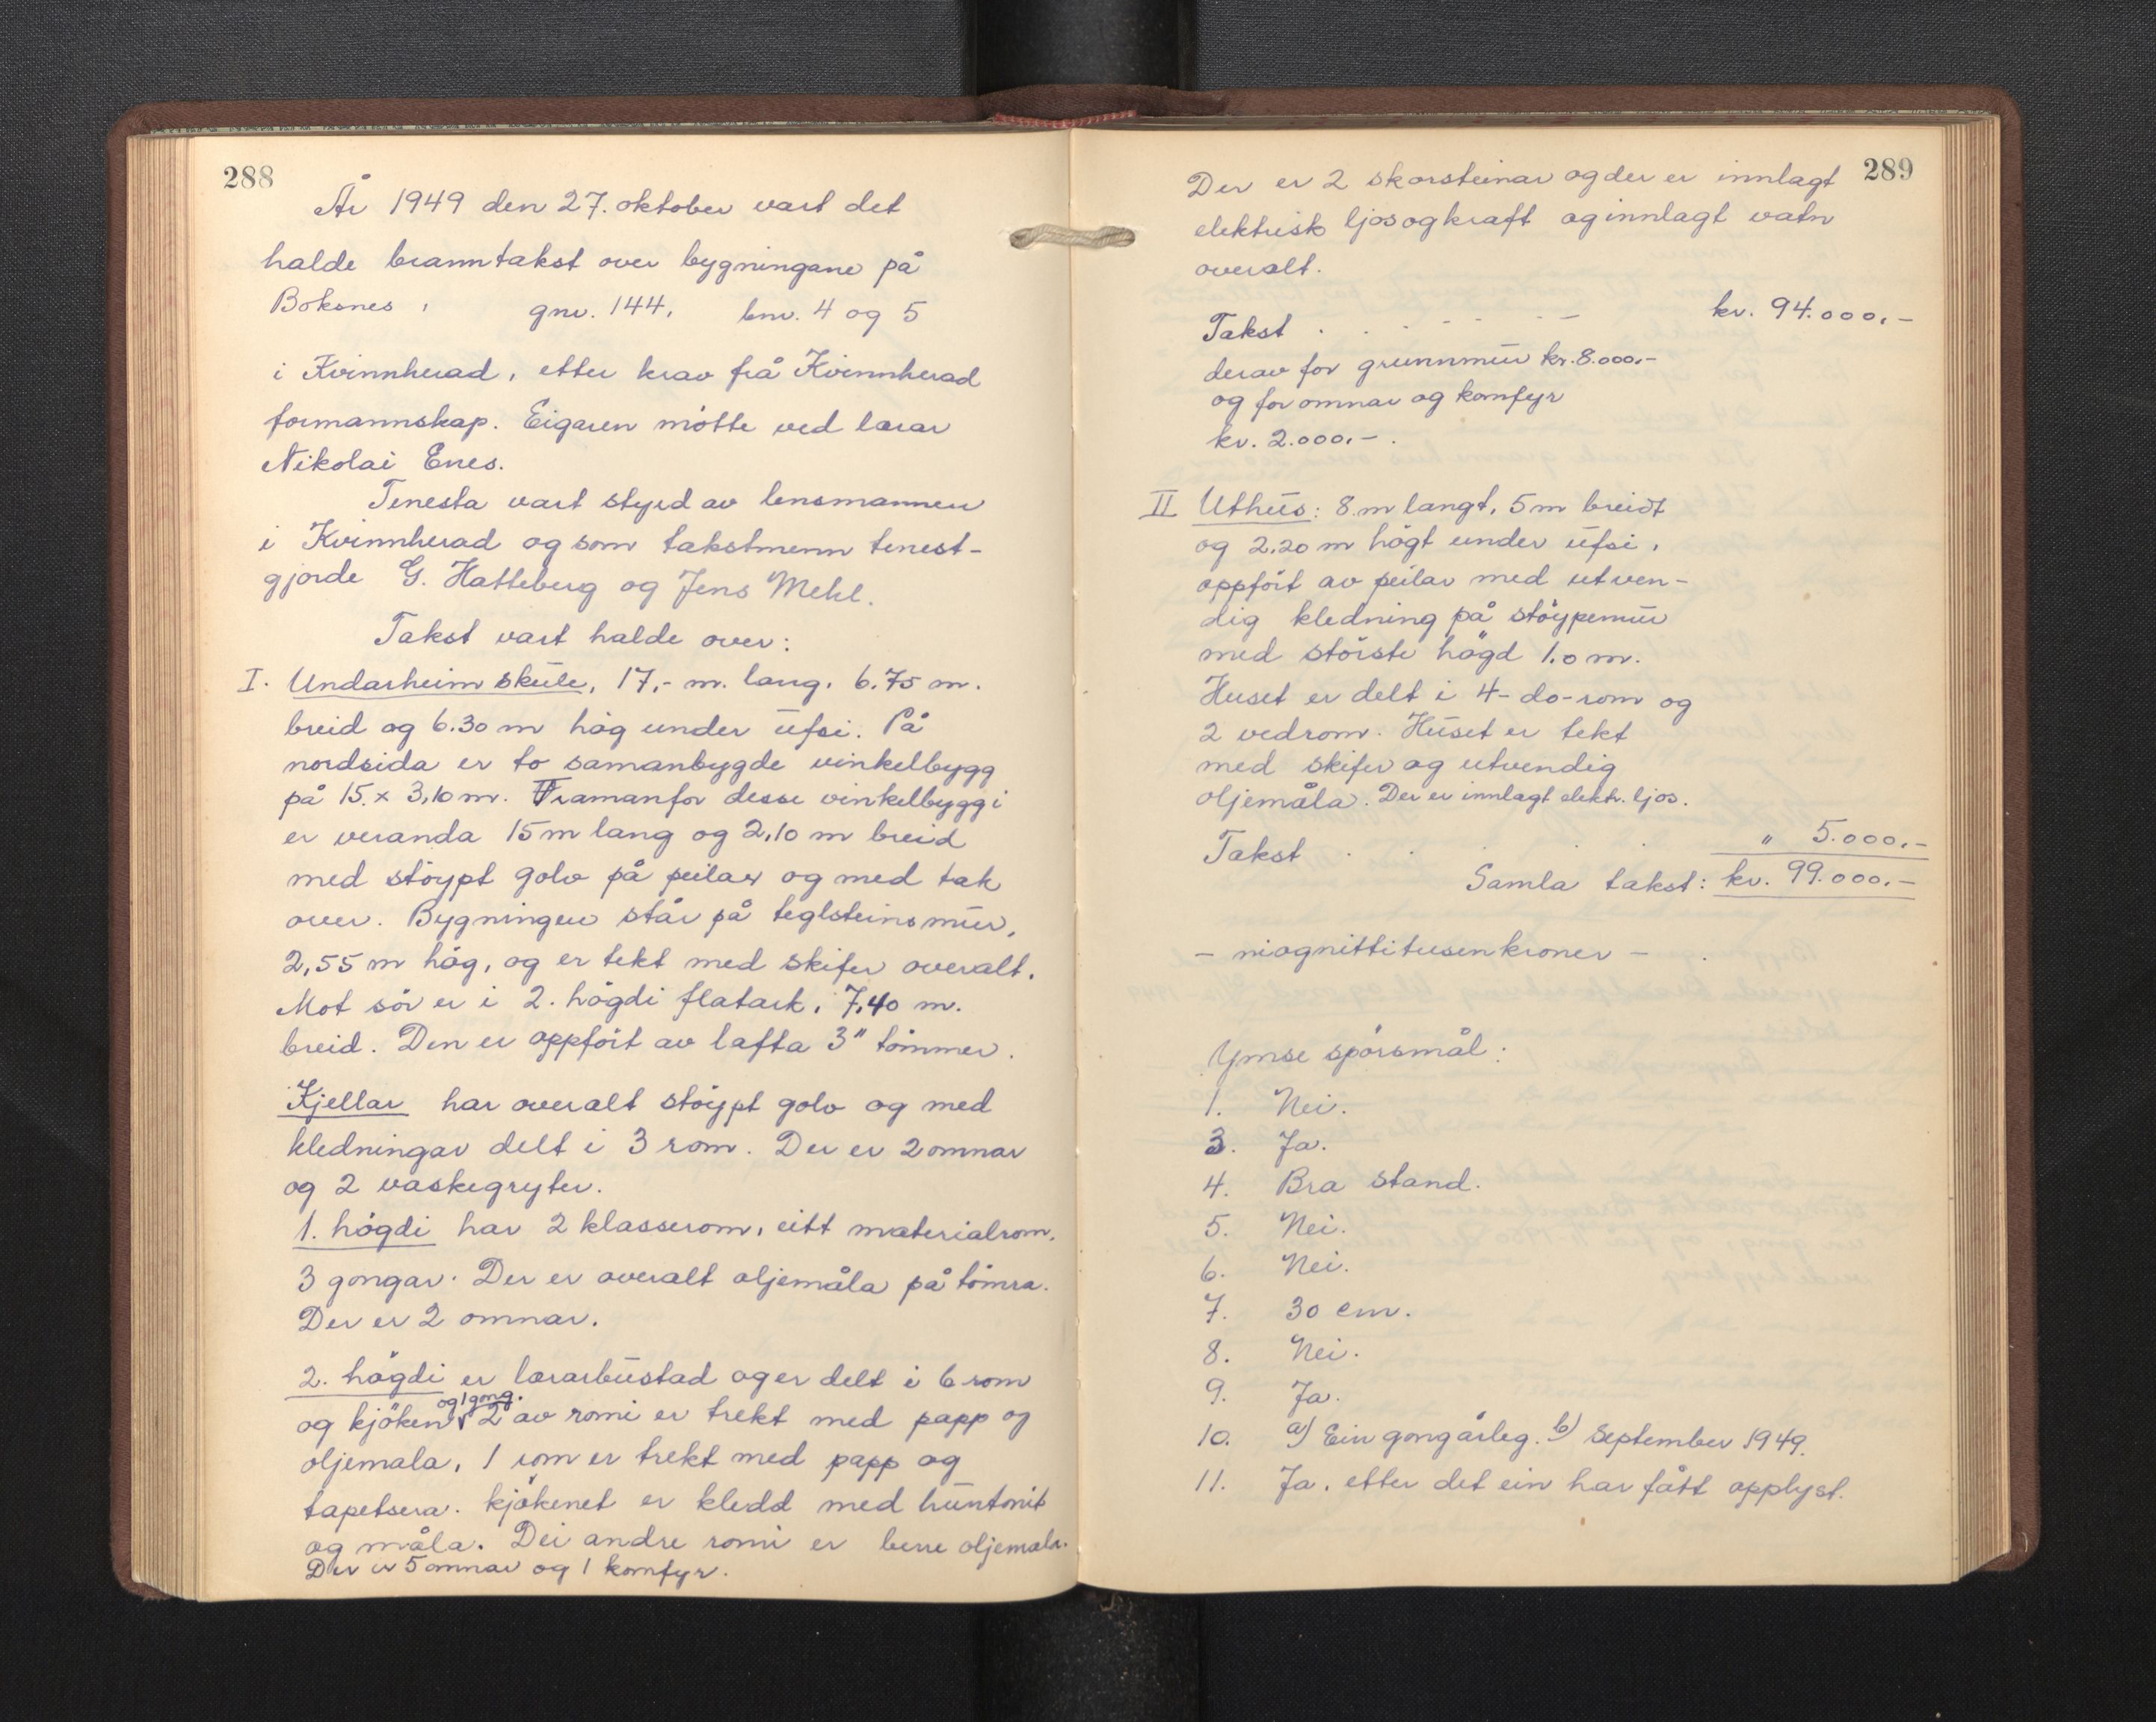 288
År 1949 den 27. oktober vart det
halde branntakst over bygningane på
Boksnes, gnr. 144, bnr. 4 og 5
i Kvinnherad, etter krav frå Kvinnherad
formannskap. Eigaren mötte ved lærar
Nikolai Enes.
Tenesta vart styrd av lensmannen
i Kvinnherad og som takstmenn tenest-
gjorde G. Hatteberg og Jens Mehl.
Takst vart halde over:
I. Undarheim skule, 17,- m. lang, 6.75 m.
breid og 6.30 m hög under ufsi. På
nordsida er to samanbygde vinkelbygg
på 15. x 3,10 m. Framanfor desse vinkelbyggi
er veranda 15 m lang og 2,10 m breid
med stöypt golv på peilar og med tak
over. Bygningen står på teglsteinsmur,
2,55 m hög, og er tekt med skifer overalt.
Mot sör er i 2. högdi flatark, 7,40 m.
breid. Den er oppfört av lafta 3" tömmer.
Kjellar har overalt stöypt golv og med
kledningar delt i 3 rom. Der er 2 omnar
og 2 vaskegryter.
1. högdi har 2 klasserom, eitt materialrom,
3 gongar. Der er overalt oljemåla på tömra.
Der er 2 omnar.
2. högdi er lærarbustad og er delt i 6 rom
og kjöken og 1 gong. 2 av romi er trekt med papp og
oljemala, 1 rom er trekt med papp og
tapetsera. kjökenet er kledd med huntonit
og måla. Dei andre romi er berre oljemala.
Der er 5 omnar og 1 komfyr.
289
Der er 2 skorsteinar og der er innlagt
elektrisk ljos og kraft og innlagt vatn
overalt.
Takst . . . . . kr. 94.000,-
derav for grunnmur kr. 8.000,-
og for omnar og komfyr
kr. 2.000,-.
II Uthus: 8.m langt, 5 m breidt
og 2.20 m högt under ufsi,
oppfört av peilar med utven-
dig kledning på stöypemur
med störste högd 1.0 m.
Huset er delt i 4-do-rom og
2 vedrom. Huset er tekt
med skifer og utvendig
oljemåla. Der er innlagt elektr. ljos.
Takst . . . . " 5.000,-
Samla takst: kr. 99.000,-
- niognittitusenkroner -
Ymse spörsmål:
1. Nei.
3. Ja.
4. Bra stand.
5. Nei.
6. Nei.
7. 30 cm.
8. Nei.
9. Ja.
10. a) Ein gong årleg. b) September 1949.
11. Ja, etter det ein har fått opplyst.